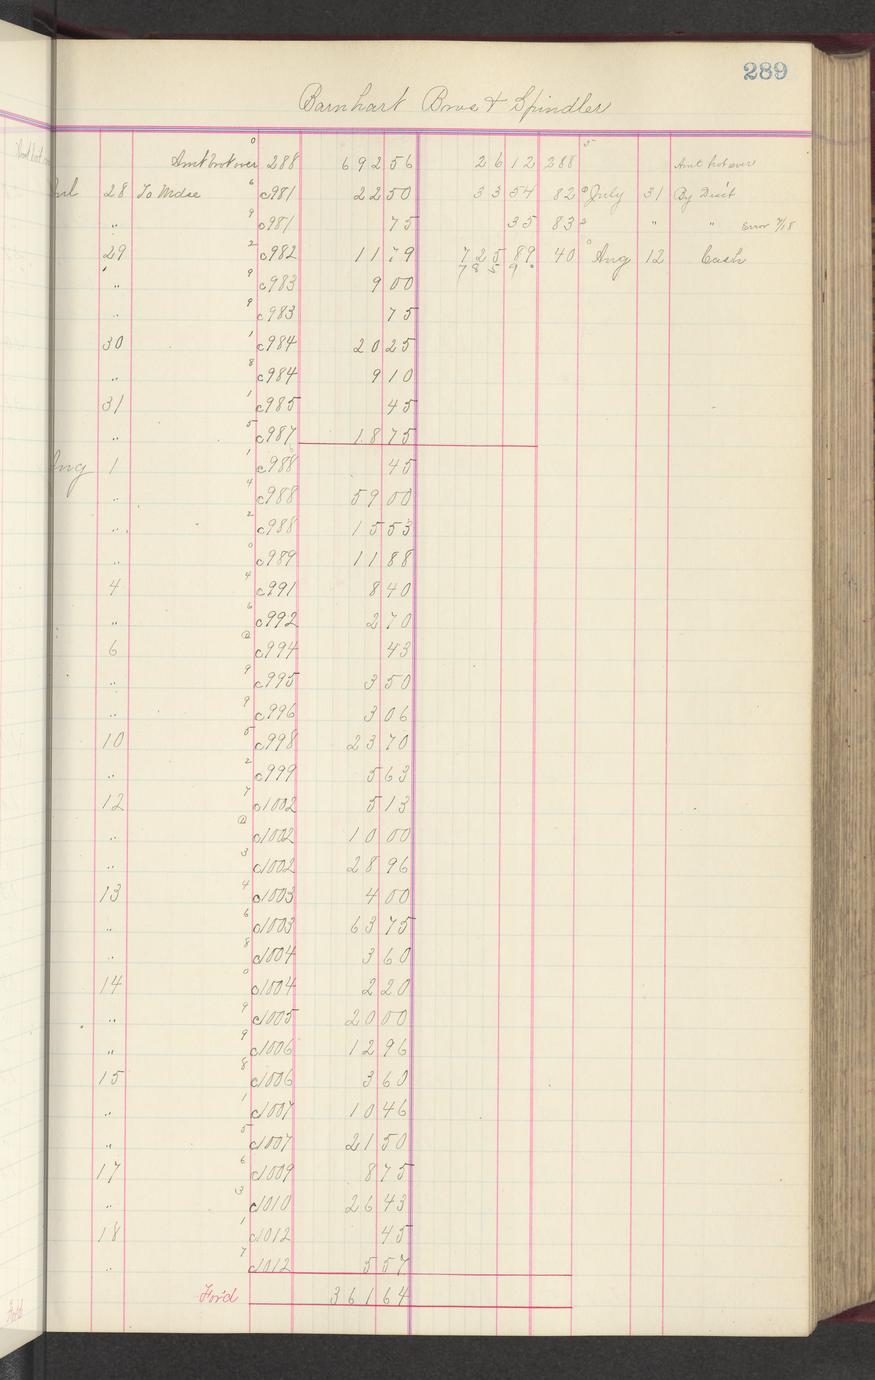 289
Barnhart Bros & Spindler
0 Amt brot over 288 692 56 26 12 288 5 Amt brot over
Jul 28 To Mdse 6 c981 22 50 33 54 82 0 July 31 By Disc't
" 9 c981 75 35 83 2 " " Error 7/15
29 2 c982 11 79 725 89 40 0 Aug 12 Cash
" 9 c983 9 00 785 90
" 9 c983 75
30 1 c984 20 25
" 8 c984 9 10
31 1 c985 45
" 5 c987 18 75
Aug 1 1 c988 45
" 4 c988 59 00
" 2 c988 15 53
" 0 c989 11 88
4 4 c991 8 40
" 6 c992 2 70
6 @ c994 43
" 9 c995 3 50
" 9 c996 3 06
10 5 c998 23 70
" 2 c999 5 63
12 7 c1002 5 13
" @ c1002 10 00
" 3 c1002 28 96
13 4 c1003 4 00
" 6 c1003 63 75
" 8 c1004 3 60
14 0 c1004 2 20
" 9 c1005 20 00
" 9 c1006 12 96
15 8 c1006 3 60
" 1 c1007 10 46
" 5 c1007 21 50
17 6 c1009 8 75
" 3 c1010 26 43
18 1 c1012 45
" 7 c1012 5 57
For'd 361 64